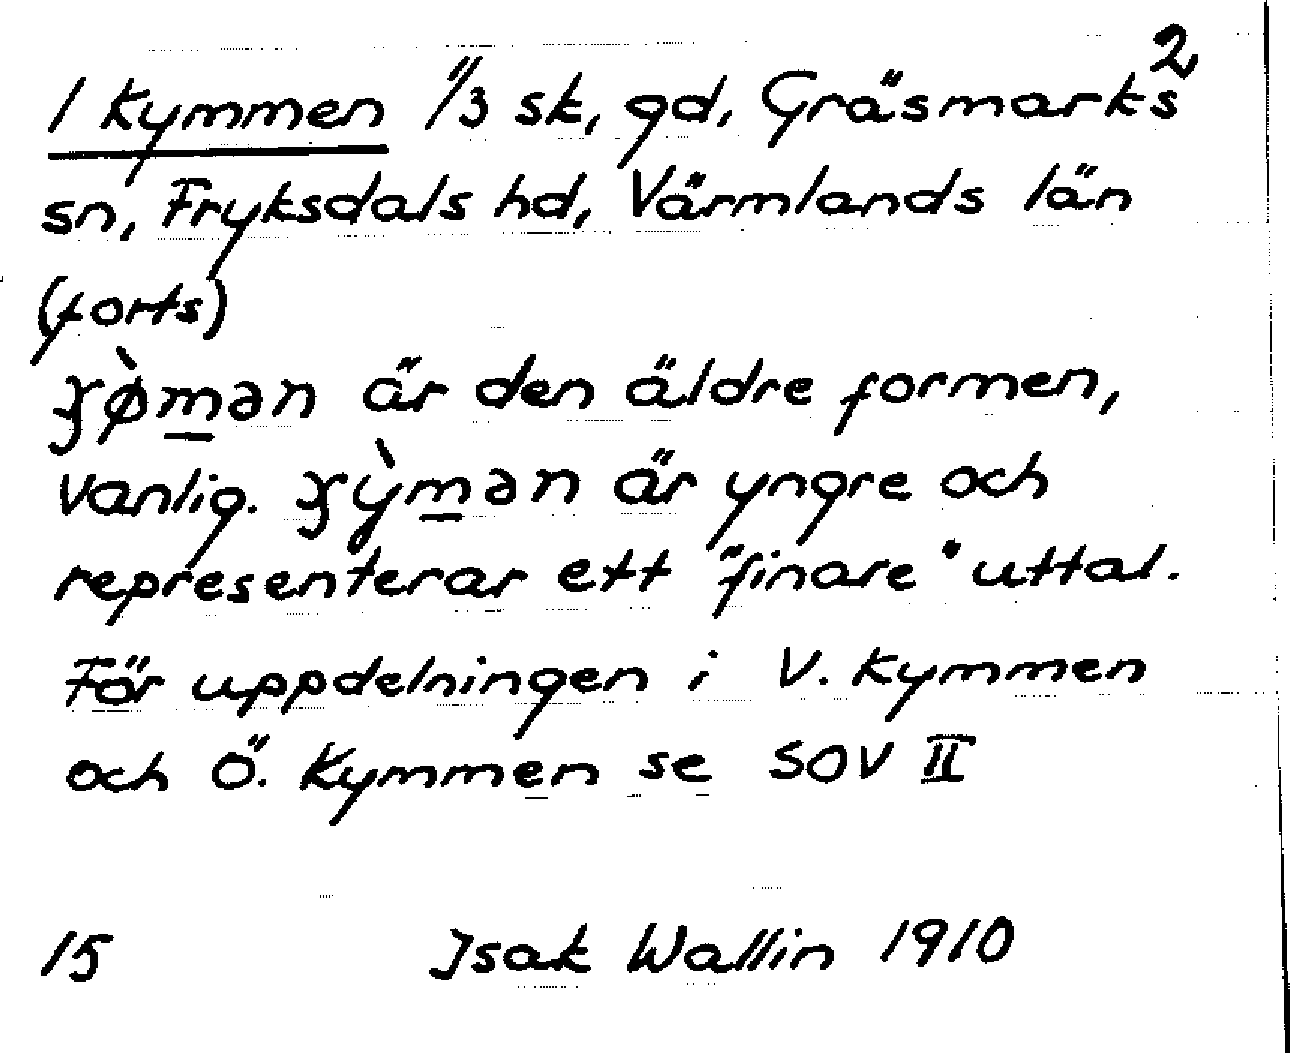 2
1 Kymmen 1/3 sk, gd, Gräsmarks
sn, Fryksdals hd, Värmlands län
(forts)
är den äldre formen,
vanlig. är yngre och
representerar ett "finare" uttal.
För uppdelningen i V. Kymmen
och Ö. Kymmen se SOV II
15 Isak Wallin 1910